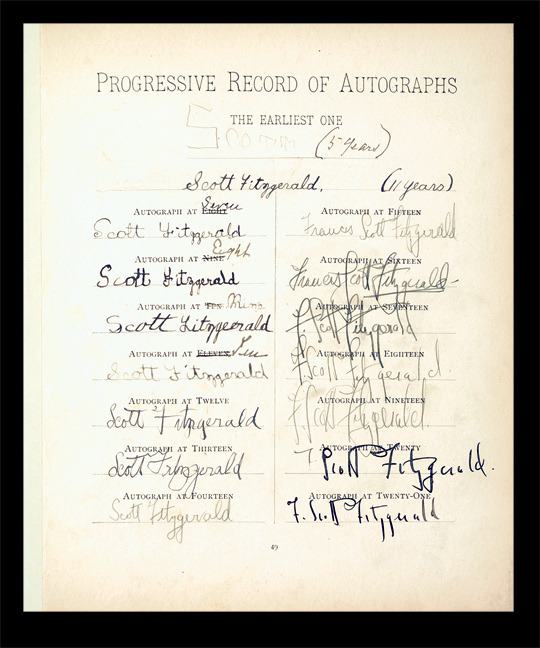 PROGRESSIVE RECORD OF AUTOGRAPHS
THE EARLIEST ONE
SCOTT (5 years)
Scott Fitzgerald. (11 years)
Seven
AUTOGRAPH AT EIGHT
Scott Fitzgerald
Eight
AUTOGRAPH AT NINE
Scott Fitzgerald
AUTOGRAPH AT TEN Nine
Scott Fitzgeerald
AUTOGRAPH AT ELEVEN Ten
Scott Fitzgerald
AUTOGRAPH AT TWELVE
Scott Fitzgerald
AUTOGRAPH AT THIRTEEN
Scott Fitzgerald
AUTOGRAPH AT FOURTEEN
Scott Fitzgerald
AUTOGRAPH AT FIFTEEN
Francis Scott Fitzgerald
AUTOGRAPH AT SIXTEEN
Francis Scott Fitzgerald
AUTOGRAPH AT SEVENTEEN
F. Scott Fitzgerald
AUTOGRAPH AT EIGHTEEN
F. Scott Fitzgerald.
AUTOGRAPH AT NINETEEN
F. Scott Fitzgerald.
AUTOGRAPH AT TWENTY
F. Scott Fitzgerald.
AUTOGRAPH AT TWENTY-ONE
F. Scott Fitzgerald
49